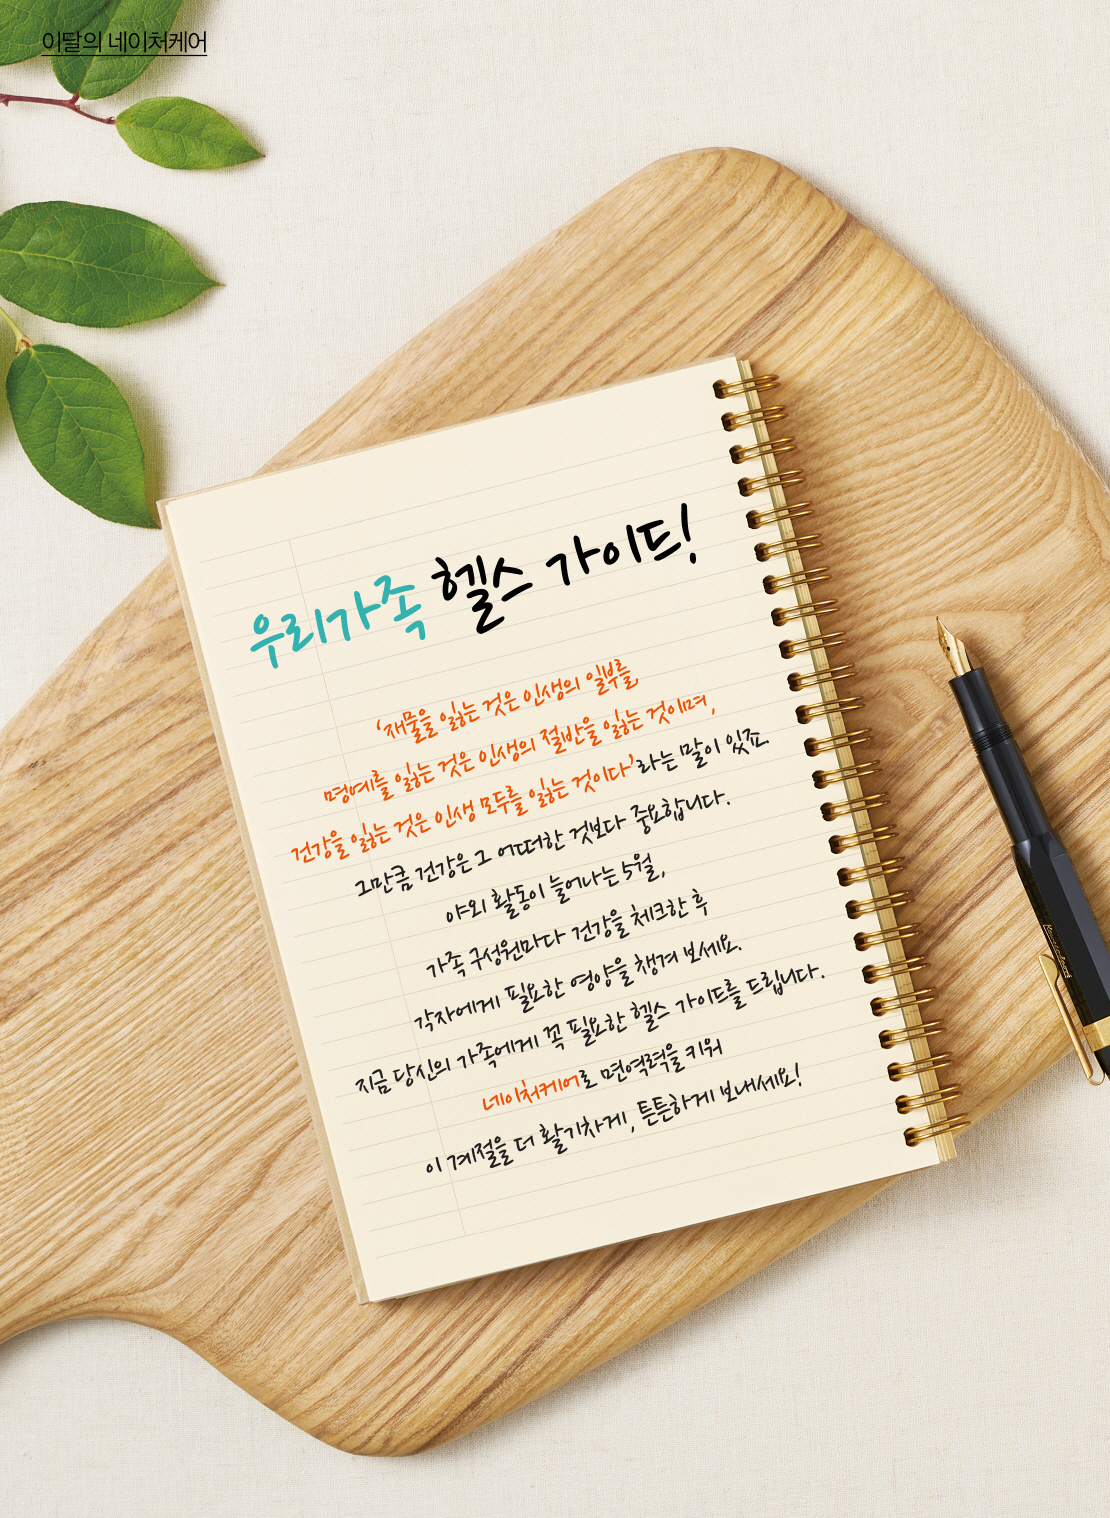 이달의 네이처케어
우리가족 헬스 가이드!
‘재물을 잃는 것은 인생의 일부를,
명예를 잃는 것은 인생의 절반을 잃는 것이며,
건강을 잃는 것은 인생 모두를 잃는 것이다’라는 말이 있죠.
그만큼 건강은 그 어떠한 것보다 중요합니다.
야외 활동이 늘어나는 5월,
가족 구성원마다 건강을 체크한 후
각자에게 필요한 영양을 챙겨 보세요.
지금 당신의 가족에게 꼭 필요한 헬스 가이드를 드립니다.
네이처케어로 면역력을 키워
이 계절을 더 활기차게, 튼튼하게 보내세요!